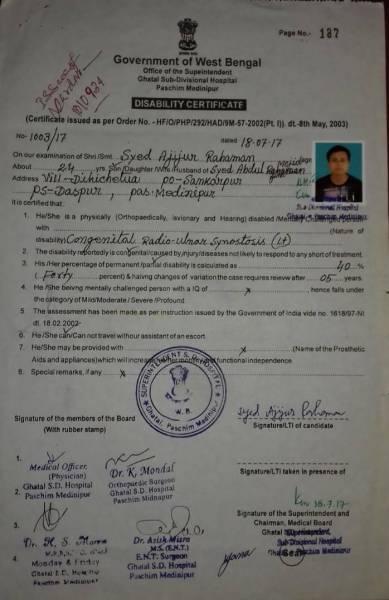 Page No.- 137
Government of West Bengal
Office of the Superintendent
Ghatal Sub-Divisional Hospital
Paschim Medinipur
DISABILITY CERTIFICATE
(Certificate issued as per Order No. -HF/O/PHP/292/HAD/9M-57-2002(Pt. I)). dt.-8th May, 2003)
No- 1003/17 dated 18-07-17
On our examination of Shri./Smt. Syed Ajijur Rahaman
About 24 yrs. Son/Daughter/Wife/Husband of Syed Abdul Rahaman
Address Vill- Dihichetia po- Samkorpur
ps- Daspur, pas. Medinipur
It is certified that:
1. He/She is a physically (Orthopaedically, isvionary and Hearing) disabled/Mentally Challenged person
with (Nature of
disability) Congenital Radio-ulnar Synostosis (Lt)
2. The disability reportedly is congenital/caused by injury/diseases not likely to respond to any short of treatment.
3. His/Her percentage of permanent/partial disability is calculated as 40 %
(Forty percent) & halving changes of variation the case requires revew after 05 years.
4. He/She beving mentally challenged person with a IQ of x hence falls under
the category of Mild/Moderate/Severe/Profound.
5. The assessment has been made as per instruction issued by the Government of India vide no. 1618/97-NI
dt. 18.02.2002
6. He/She can/Can not travel without assistant of an escort.
7. He/She may be provided with x (Name of the Prosthetic
Aids and appliances)which will increase mother mony and functional independence.
8. Special remarks, if any x
SUPERINTENDENT S.D. HOSPITAL
W. B.
Ghatal, Paschim Medinipur
Signature of the members of the Board
(With rubber stamp)
Syed Ajijur Rahaman
Signature/LTI of candidate
1.
Medical Officer
(Physician)
Ghatal S.D. Hospital
Paschim Medinipur
2.
Dr. K. Mondal
Orthopaedic Surgeon
Ghatal S.D. Hospital
Paschim Midnapur
Signature/LTI taken in presence of
18.7.17
Signature of the Superintendent and
Chairman, Medical Board
Superintendent
Sub Divisional Hospital
3.
4.
Monday & Friday
Ghatal S.D. Hospital
Paschim Medinipur
Dr. Asish Misra
M.S. (E.N.T.)
E.N.T. Surgeon
Ghatal S.D. Hospital
Paschim Medinipur